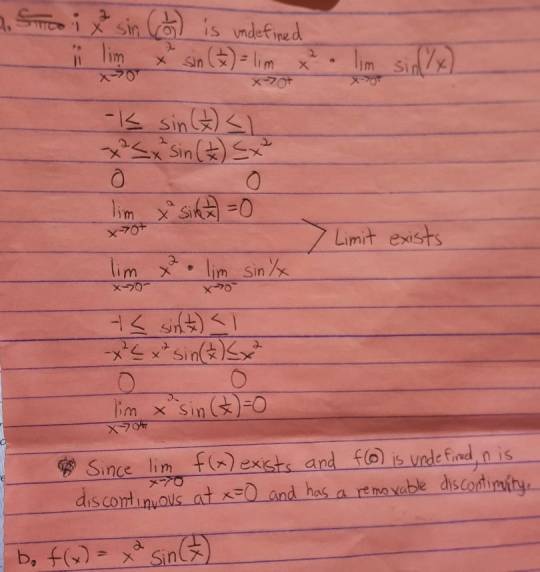 a. i x² sin(1/0) is undefined
ii lim x→0⁺ x² sin(1/x) = lim x→0⁺ x² • lim x→0⁺ sin(1/x)
-1 ≤ sin(1/x) ≤ 1
-x² ≤ x² sin(1/x) ≤ x²
0 0
lim x→0⁺ x² sin(1/x) = 0
> Limit exists
lim x→0⁻ x² • lim x→0⁻ sin 1/x
-1 ≤ sin(1/x) ≤ 1
-x² ≤ x² sin(1/x) ≤ x²
0 0
lim x→0 x² sin(1/x) = 0
Since lim x→0 f(x) exists and f(0) is undefined, n is
discontinuous at x=0 and has a removable discontinuity.
b. f(x) = x² sin(1/x)